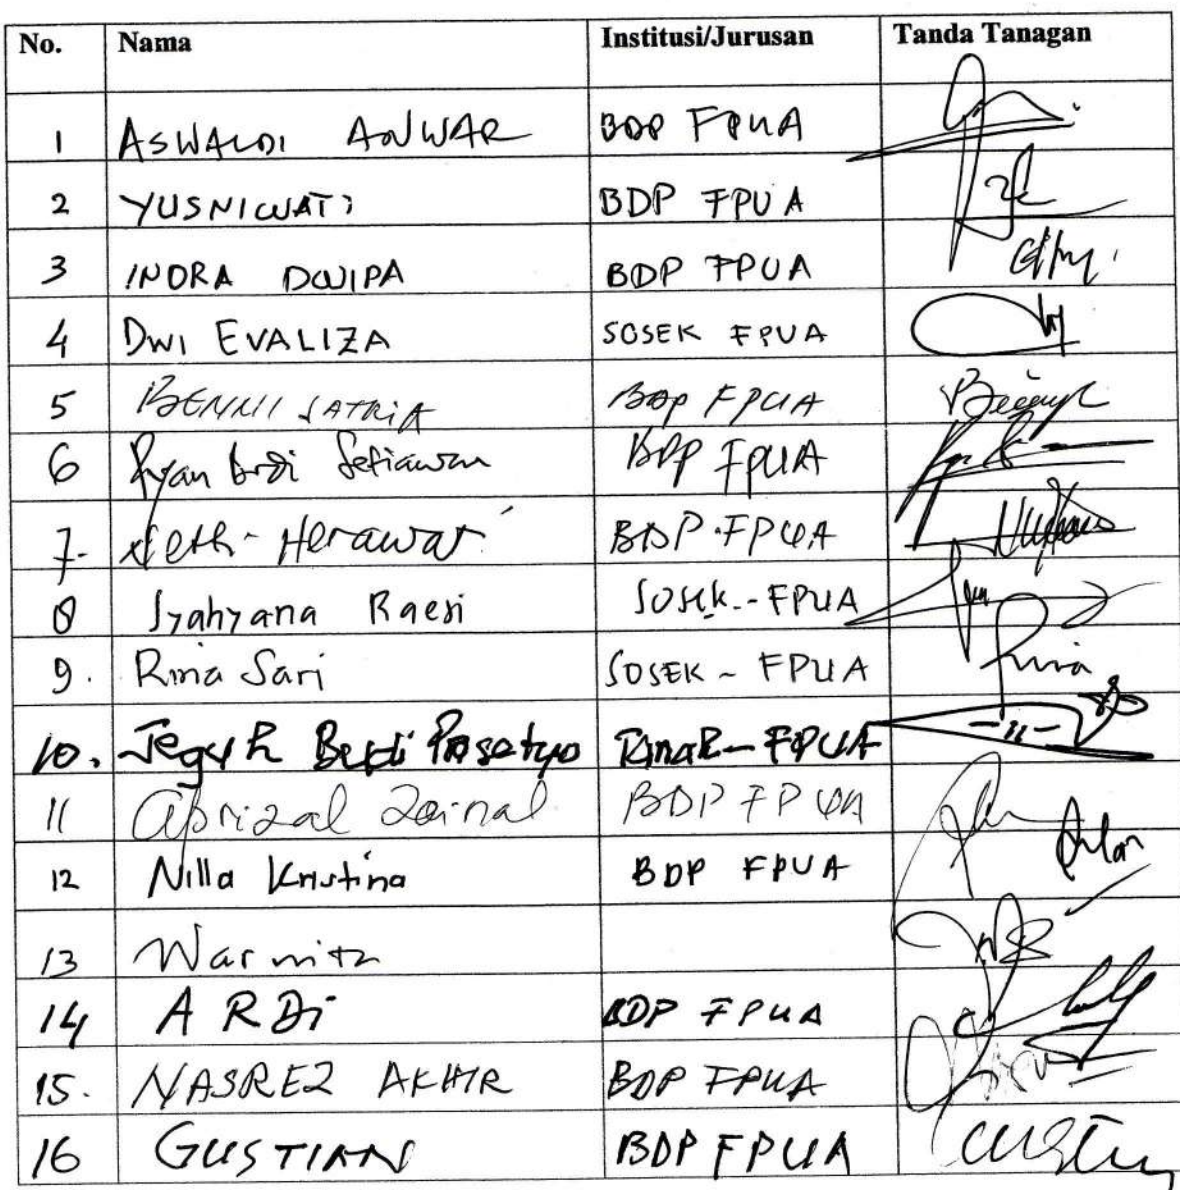 No. Nama Institusi/Jurusan Tanda Tanagan
1 ASWALDI ANWAR BDP FPUA
2 YUSNIWATI BDP FPUA
3 INDRA DWIPA BDP FPUA
4 DWI EVALIZA SOSEK FPUA
5 BENNI SATRIA BDP FPUA
6 Ryan Budi Setiawan BDP FPUA
7. Herawati BDP.FPUA
8 Syahyana Raesi Sosek.-FPUA
9. Rina Sari SOSEK - FPUA Rina
10. Budi Prasetyo FPUA
11 Aprizal Zainal BDP FPUA
12 Nilla Kristina BDP FPUA
13 Warnita
14 ARDi BDP FPUA
15. NASREZ AKHIR BDP FPUA
16 GUSTIAN BDP FPUA